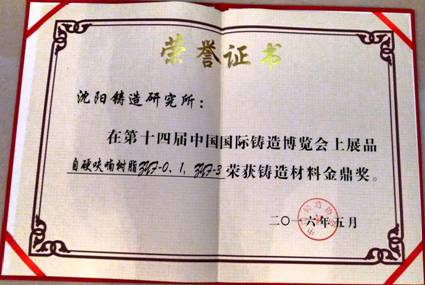 荣誉证书
沈阳铸造研究所：
在第十四届中国国际铸造博览会上展品
自硬呋喃树脂ZYF-0、1，ZYF-3荣获铸造材料金鼎奖。
二〇一六年五月